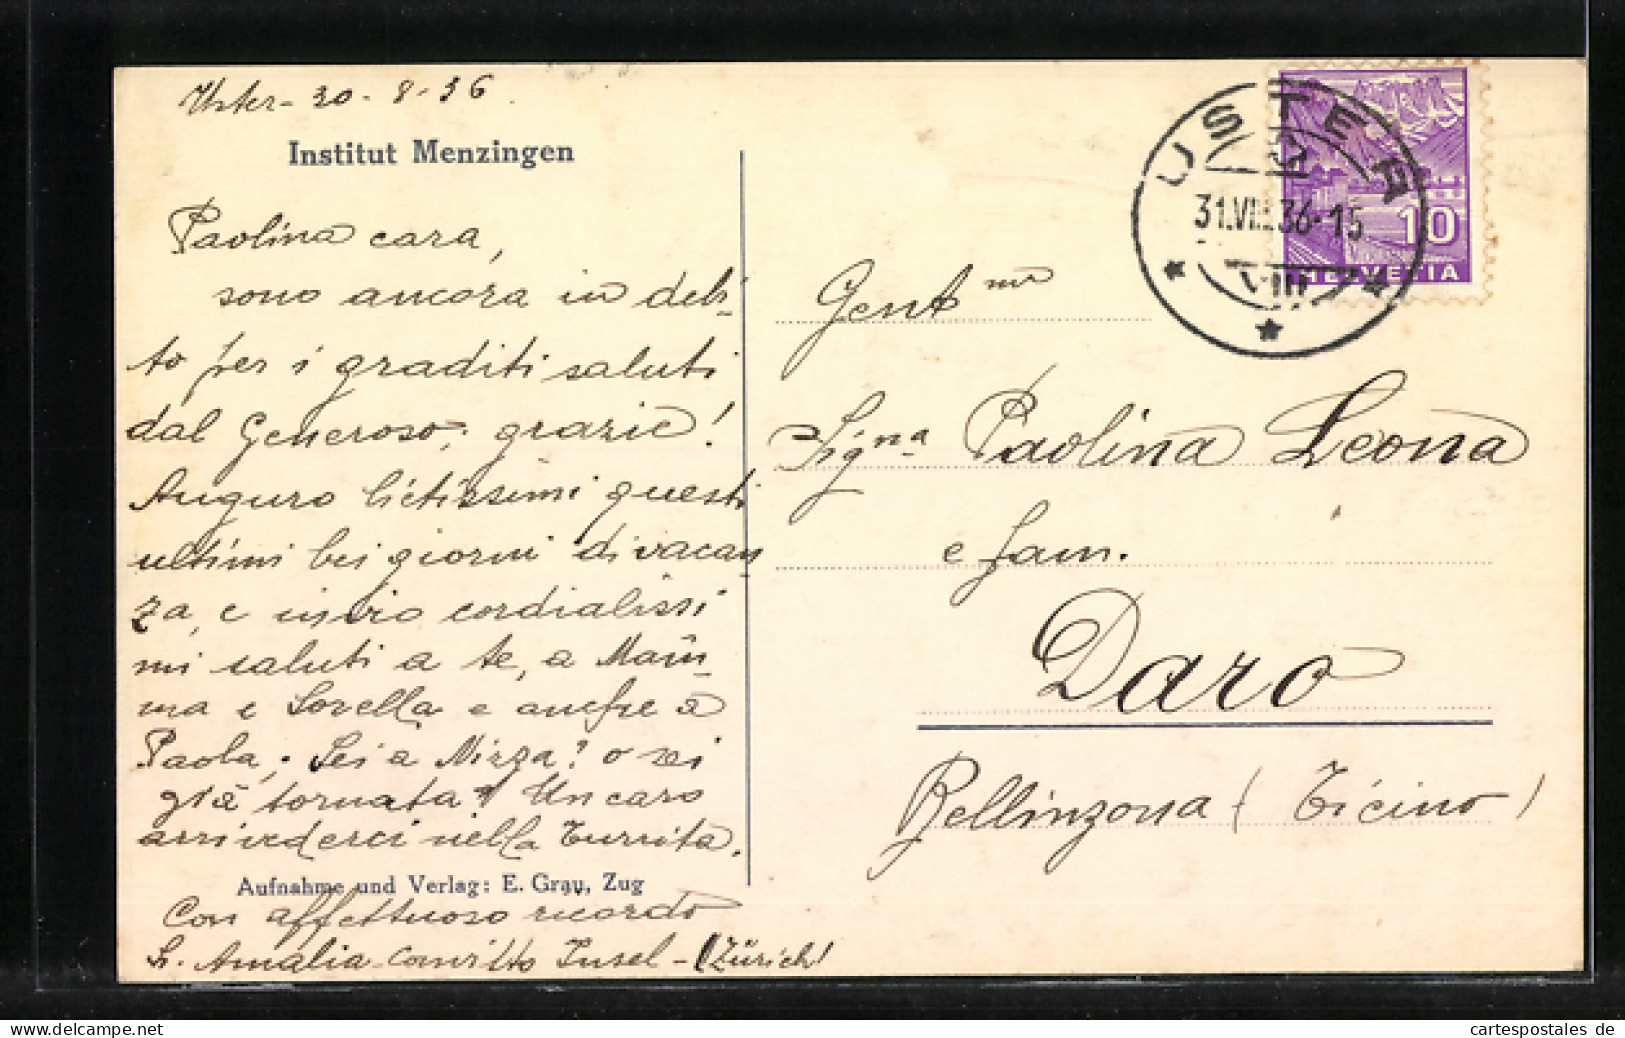 Uster - 30 - 8 - 36.
Institut Menzingen
Paolina cara,
sono ancora in debi-
to per i graditi saluti
dal Generoso; grazie!
Auguro lietissimi questi
ultimi bei giorni di vacan
za, e invio cordialissi
mi saluti a te, a Mam-
ma e Sorella e anche a
Paola; Sei a Mirza? o sei
già tornata? Un caro
arrivederci nella Turrita.
Aufnahme und Verlag: E. Grau, Zug
Con affettuoso ricordo
Sr. Amalia - Convitto Insel - (Zürich)
USTER
31.VIII.36-15
VIII
10
HELVETIA
Gent ma
Sig na Paolina Leona
e fam.
Daro
Bellinzona (Ticino)
www.delcampe.net
cartespostales de